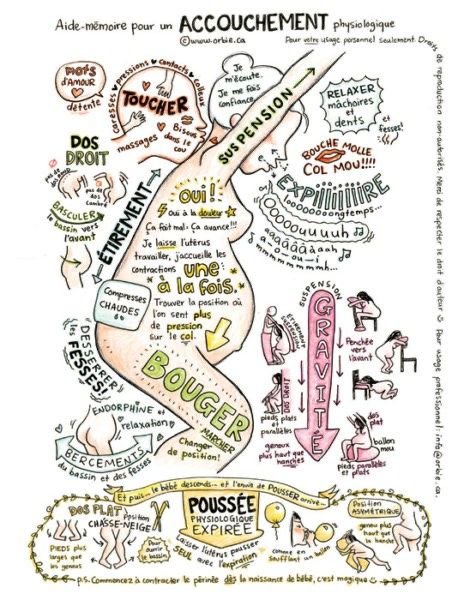 Aide-mémoire pour un ACCOUCHEMENT physiologique
©www.orbie.ca
Pour votre usage personnel seulement. Droits de reproduction non-autorisés. Merci de respecter le droit d'auteur :) Pour usage professionnel: info@orbie.ca.
MOTS
D'AMOUR
détente
caresses • pressions • contacts • calleux
TOUCHER
massages
Bisous
dans le
cou
Je
m'écoute.
Je me fais
confiance.
SUSPENSION
RELAXER
mâchoires
et
dents
et
fesses!
BOUCHE MOLLE
COL MOU!!!!
EXPIIIIIIIRE
looooooooongtemps...
ouuuuuuuuh
aaaâââââaah
a-o-ou-i
mmmmmmmh...
DOS
DROIT
pas de
dos rond
pas de
dos
cambré
BASCULER
le bassin vers
l'avant
ÉTIREMENT
OUI!
Oui à la douleur
Ça fait mal. Ça avance!!!
Je laisse l'utérus
travailler, j'accueille les
contractions une
à la fois.
Trouver la position où
l'on sent plus
de pression
sur le col.
Compresses
CHAUDES
DESSERRER
les
FESSES!
ENDORPHINE et
relaxation
BERCEMENTS
du bassin et des fesses
BOUGER
MARCHER
Changer
de position!
SUSPENSION
GRAVITÉ
ÉTIREMENT
SUSPENSION
DOS DROIT
pieds plats
et
parallèles
genoux
plus haut que
hanches
Penchée
vers
l'avant
dos
plat
ballon
mou
pieds parallèles
et plats
Et puis... le bébé descends... et l'envie de POUSSER arrive...
DOS PLAT
Position
CHASSE-NEIGE
PIEDS plus
larges que
les genoux
Pour
ouvrir
le bassin
POUSSÉE
PHYSIOLOGIQUE
EXPIRÉE
Laisser l'utérus pousser
SEUL avec l'expiration
comme en
soufflant un ballon
Position
ASYMÉTRIQUE
genou plus
haut que
la hanche
p.s. Commencez à contracter le périnée dès la naissance de bébé, c'est magique :)